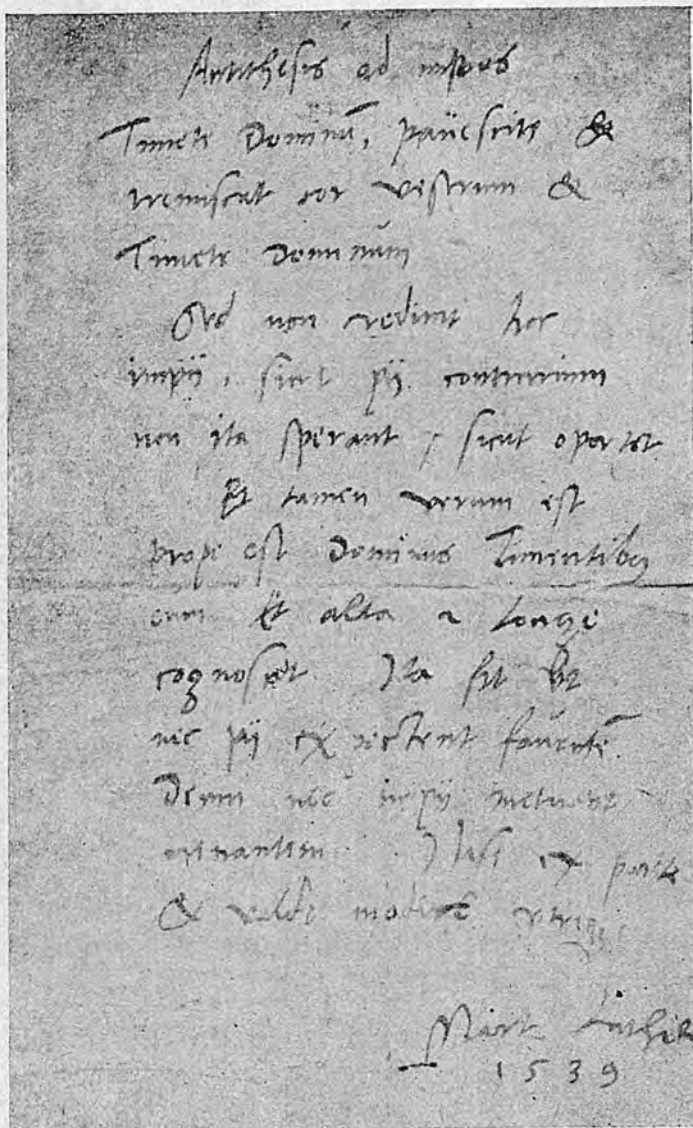 Antithesis ad impios
Timete Dominū, pauescite &
tremiscat cor vestrum &
Timete Dominum
Sed non credunt hoc
impij, sicut pij contrarium
non ita sperant, sicut oportet
Et tamen verum est
prope est Dominus Timentibus
eum Et alta a longe
cognoscet Ita fit vt
nec pij expectent fauentē
Deum nec impij metuant
Nisi ex parte
& valde modice vtriqȝ
Mart Luther
1539